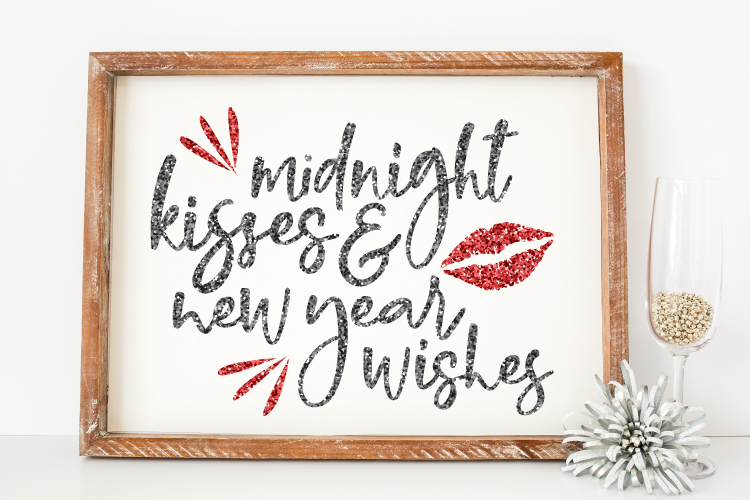 midnight
kisses &
new year
wishes